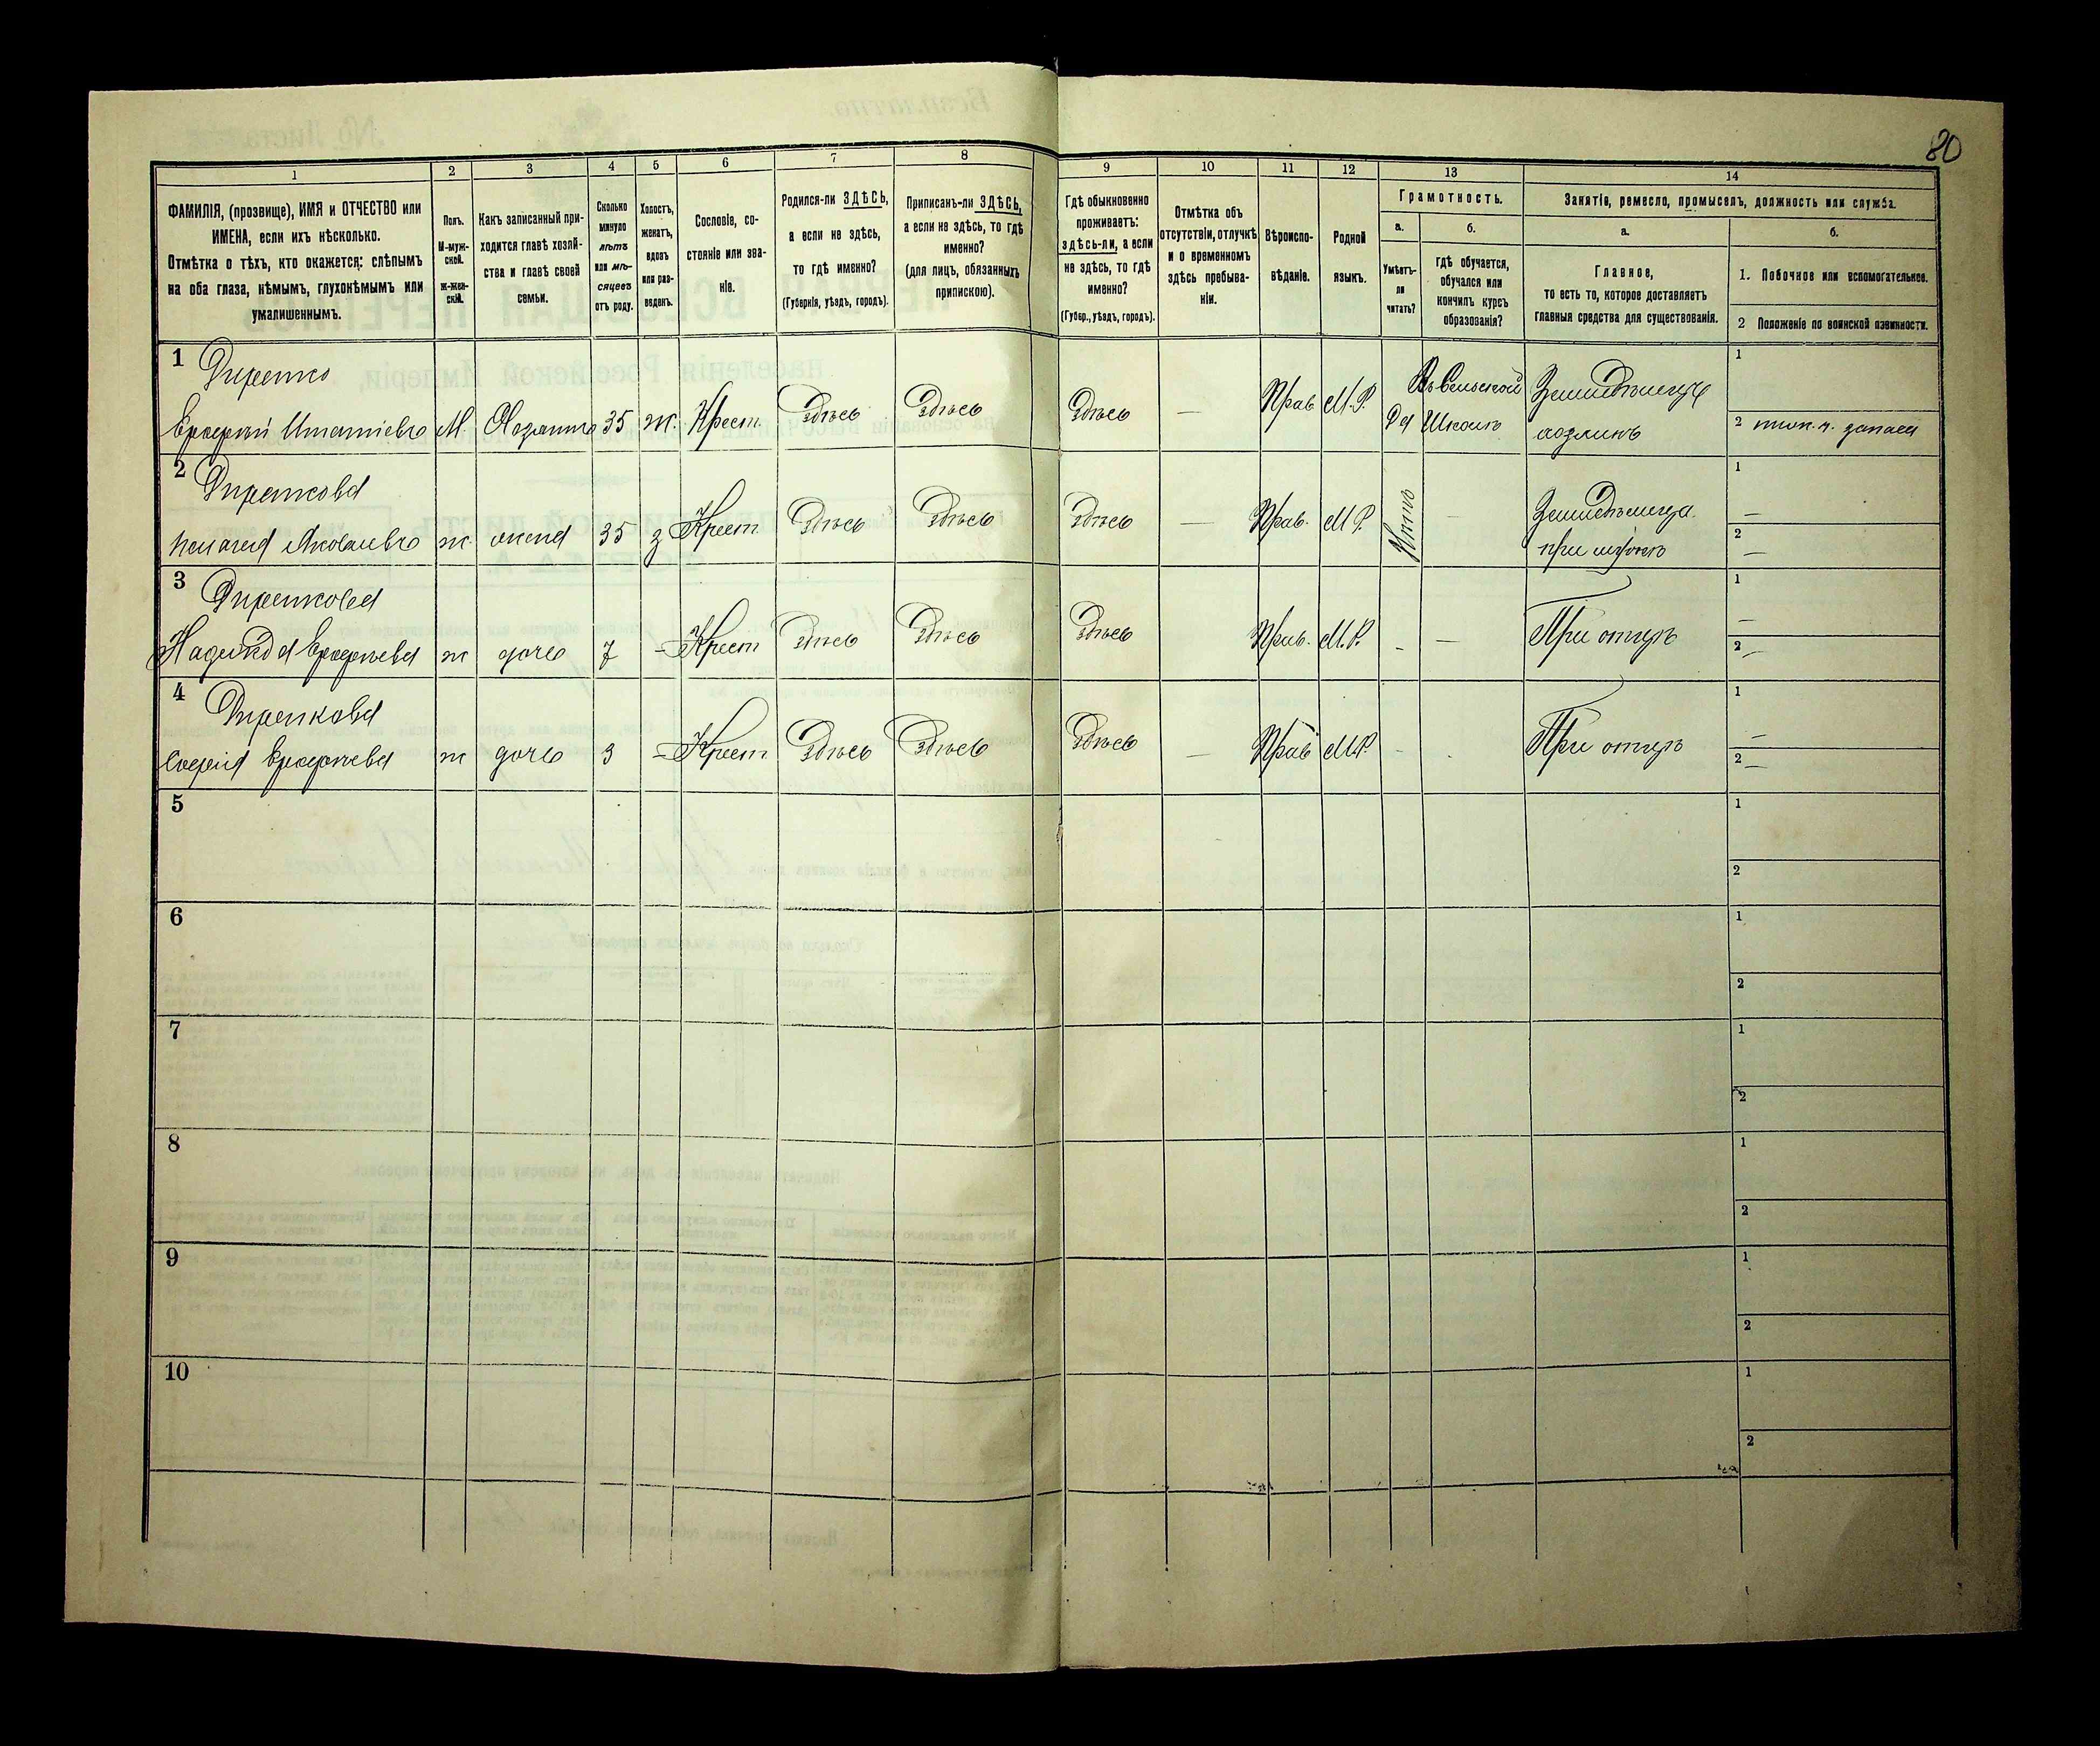 80
1 2 3 4 5 6 7 8 9 10 11 12 13 14
ФАМИЛІЯ, (прозвище), ИМЯ и ОТЧЕСТВО или
ИМЕНА, если ихъ нѣсколько.
Отмѣтка о тѣхъ, кто окажется: слѣпымъ
на оба глаза, нѣмымъ, глухонѣмымъ или
умалишеннымъ.
Полъ.
М-муж-
ской.
ж-жен-
скій.
Какъ записанный при-
ходится главѣ хозяй-
ства и главѣ своей
семьи.
Сколько
минуло
лѣтъ
или мѣ-
сяцевъ
отъ роду.
Холостъ,
женатъ,
вдовъ
или раз-
веденъ.
Сословіе, со-
стояніе или зва-
ніе.
Родился-ли ЗДѢСЬ,
а если не здѣсь,
то гдѣ именно?
(Губернія, уѣздъ, городъ).
Приписанъ-ли ЗДѢСЬ,
а если не здѣсь, то гдѣ
именно?
(для лицъ, обязанныхъ
припискою).
Гдѣ обыкновенно
проживаетъ:
здѣсь-ли, а если
не здѣсь, то гдѣ
именно?
(Губер., уѣздъ, городъ).
Отмѣтка объ
отсутствіи, отлучкѣ
и о временномъ
здѣсь пребыва-
ніи.
Вѣроиспо-
вѣданіе.
Родной
языкъ.
Грамотность.
а.
Умѣетъ-
ли
читать?
б.
гдѣ обучается,
обучался или
кончилъ курсъ
образованія?
Занятіе, ремесло, промыселъ, должность или служба.
а.
Главное,
то есть то, которое доставляетъ
главныя средства для существованія.
б.
1. Побочное или вспомогательное.
2 Положеніе по воинской повинности.
1 Диренко 1
М Хозяинъ 35 ж. Крест. Здѣсь Здѣсь Здѣсь — Прав М.Р. Да Въ Сельской Школѣ
хозяинъ
2 запаса
2 Диренкова 1 —
Яковлевна ж. жена 35 з Крест. Здѣсь Здѣсь Здѣсь — Прав. М.Р. Нѣтъ —
при мужѣ
2 —
3 Диренкова 1 —
Надежда ж дочь 7 — Крест Здѣсь Здѣсь Здѣсь Прав. М.Р. - — При отцѣ
2 —
4 Диренкова 1 —
Софія ж дочь 3 — Крест Здѣсь Здѣсь Здѣсь — Прав М.Р. - При отцѣ
2 —
5 1
2
6 1
2
7 1
2
8 1
2
9 1
2
10 1
2